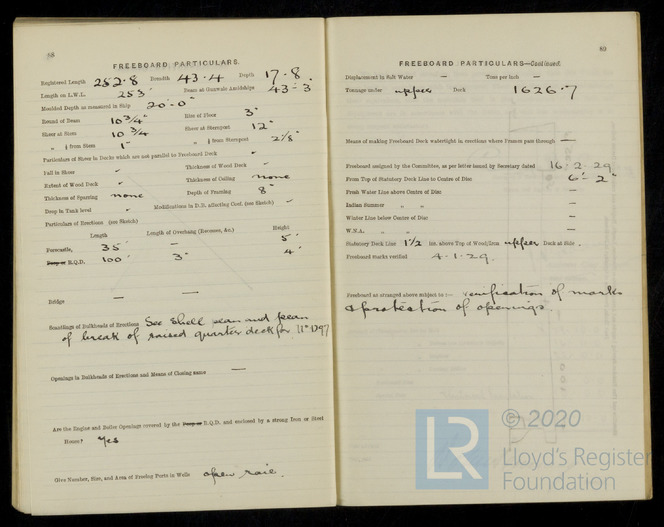 88
FREEBOARD PARTICULARS.
Registered Length 252·8 Breadth 43·4 Depth 17·8.
Length on L.W.L. 253' Beam at Gunwale Amidships 43'-3
Moulded Depth as measured in Ship 20'-0"
Round of Beam 10 3/4" Rise of Floor 3"
Sheer at Stem 10 3/4 Sheer at Sternpost 12"
" ⅛ from Stem 1" " ⅛ from Sternpost 2 1/8"
Particulars of Sheer in Decks which are not parallel to Freeboard Deck
Fall in Sheer Thickness of Wood Deck
Extent of Wood Deck Thickness of Ceiling none
Thickness of Sparring none Depth of Framing 8"
Deep in Tank level Modifications in D.B. affecting Coef. (see Sketch)
Particulars of Erections (see Sketch)
Length Length of Overhang (Recesses, &c.) Height
Forecastle, 35' — 5'
Poop or R.Q.D. 100' 3" 4'
Bridge — —
Scantlings of Bulkheads of Erections See shell plan and plan
of break of raised quarter deck for No 1297
Openings in Bulkheads of Erections and Means of Closing same —
Are the Engine and Boiler Openings covered by the Poop or R.Q.D. and enclosed by a strong Iron or Steel
House? Yes
Give Number, Size, and Area of Freeing Ports in Wells open rail.
89
FREEBOARD PARTICULARS—Continued.
Displacement in Salt Water — Tons per inch —
Tonnage under upper Deck 1626·7
Means of making Freeboard Deck watertight in erections where Frames pass through —
Freeboard assigned by the Committee, as per letter issued by Secretary dated 16·2·29
From Top of Statutory Deck Line to Centre of Disc 6'-2"
Fresh Water Line above Centre of Disc —
Indian Summer " " —
Winter Line below Centre of Disc —
W.N.A. " " —
Statutory Deck Line 1½ ins. above Top of Wood/Iron upper Deck at Side.
Freeboard marks verified 4·1·29.
Freeboard as arranged above subject to:— verification of marks
& protection of openings.
LR © 2020
Lloyd's Register
Foundation